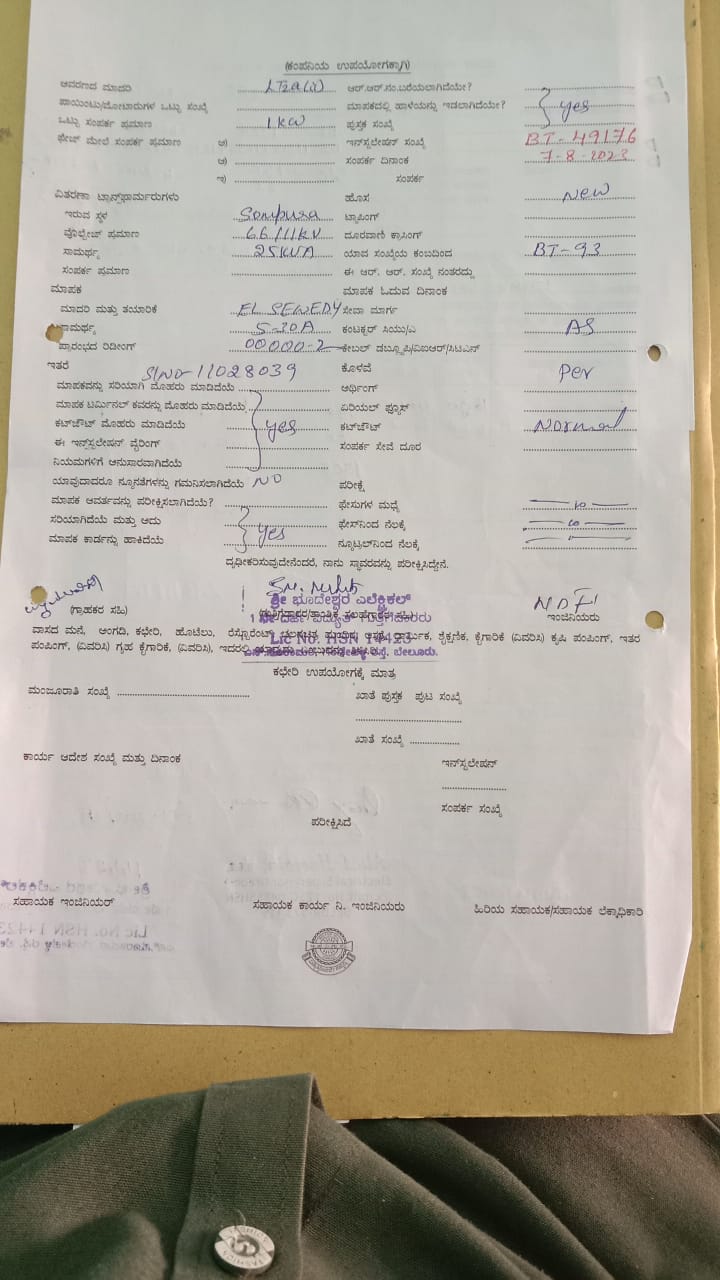 (ಕಂಪನಿಯ ಉಪಯೋಗಕ್ಕಾಗಿ)
ಆವರಣದ ಮಾದರಿ LT2a(ii) ಆರ್.ಆರ್.ನಂ.ಬರೆಯಲಾಗಿದೆಯೇ?
ಪಾಯಿಂಟು/ಮೋಟಾರುಗಳ ಒಟ್ಟು ಸಂಖ್ಯೆ ಮಾಪಕದಲ್ಲಿ ಹಾಳೆಯನ್ನು ಇಡಲಾಗಿದೆಯೇ? yes
ಒಟ್ಟು ಸಂಪರ್ಕ ಪ್ರಮಾಣ 1 KW ಪುಸ್ತಕ ಸಂಖ್ಯೆ
ಫೇಜ್ ಮೇಲೆ ಸಂಪರ್ಕ ಪ್ರಮಾಣ ಅ) ಇನ್‌ಸ್ಟಲೇಷನ್ ಸಂಖ್ಯೆ BT-49176
ಆ) ಸಂಪರ್ಕ ದಿನಾಂಕ 7-8-2023
ಇ) ಸಂಪರ್ಕ
ವಿತರಣಾ ಟ್ರಾನ್ಸ್‌ಫಾರ್ಮರುಗಳು ಹೊಸ New
ಇರುವ ಸ್ಥಳ Sompura ಟ್ಯಾಪಿಂಗ್
ವೊಲ್ಟೇಜ್ ಪ್ರಮಾಣ 66/11KV ದೂರವಾಣಿ ಕ್ರಾಸಿಂಗ್
ಸಾಮರ್ಥ್ಯ 25KVA ಯಾವ ಸಂಖ್ಯೆಯ ಕಂಬದಿಂದ BT-93
ಸಂಪರ್ಕ ಪ್ರಮಾಣ ಈ ಆರ್. ಆರ್. ಸಂಖ್ಯೆ ನಂತರದ್ದು
ಮಾಪಕ ಮಾಪಕ ಓದುವ ದಿನಾಂಕ
ಮಾದರಿ ಮತ್ತು ತಯಾರಿಕೆ EL SEWEDY ಸೇವಾ ಮಾರ್ಗ
ಸಾಮರ್ಥ್ಯ 5-30A ಕಂಡಕ್ಟರ್ ಸಿಯು/ಎ AS
ಪ್ರಾರಂಭದ ರಿಡೀಂಗ್ 00000-2 ಕೇಬಲ್ ಡಬ್ಲ್ಯೂಪಿ/ವಿಐಆರ್/ಸಿಟಿಎಸ್
ಇತರೆ S/NO-11028039 ಕೊಳವೆ Per
ಮಾಪಕವನ್ನು ಸರಿಯಾಗಿ ಮೊಹರು ಮಾಡಿದೆಯೆ ಅರ್ಥಿಂಗ್
ಮಾಪಕ ಟರ್ಮಿನಲ್ ಕವರನ್ನು ಮೊಹರು ಮಾಡಿದೆಯೆ ಏರಿಯಲ್ ಫ್ಯೂಸ್
ಕಟ್‌ಔಟ್ ಮೊಹರು ಮಾಡಿದೆಯೆ yes ಕಟ್‌ಔಟ್ Normal
ಈ ಇನ್‌ಸ್ಟಲೇಷನ್ ವೈರಿಂಗ್ ಸಂಪರ್ಕ ಸೇವೆ ದೂರ
ನಿಯಮಗಳಿಗೆ ಅನುಸಾರವಾಗಿದೆಯೆ
ಯಾವುದಾದರೂ ನ್ಯೂನತೆಗಳನ್ನು ಗಮನಿಸಲಾಗಿದೆಯೆ NO ಪರೀಕ್ಷೆ
ಮಾಪಕ ಆವರ್ತವನ್ನು ಪರೀಕ್ಷಿಸಲಾಗಿದೆಯೆ? ಫೇಸುಗಳ ಮಧ್ಯೆ
ಸರಿಯಾಗಿದೆಯೆ ಮತ್ತು ಅದು yes ಫೇಸ್‌ನಿಂದ ನೆಲಕ್ಕೆ
ಮಾಪಕ ಕಾರ್ಡನ್ನು ಹಾಕಿದೆಯೆ ನ್ಯೂಟ್ರಲ್‌ನಿಂದ ನೆಲಕ್ಕೆ
ದೃಢೀಕರಿಸುವುದೇನೆಂದರೆ, ನಾನು ಸ್ಥಾವರವನ್ನು ಪರೀಕ್ಷಿಸಿದ್ದೇನೆ.
ಶ್ರೀ ಭೂದೇಶ್ವರ ಎಲೆಕ್ಟ್ರಿಕಲ್
(ಗ್ರಾಹಕರ ಸಹಿ) ಇಂಜಿನಿಯರು
Lic No. HSN 14423
ವಾಸದ ಮನೆ, ಅಂಗಡಿ, ಕಛೇರಿ, ಹೊಟೆಲು, ರೆಸ್ಟೊರೆಂಟ್, ಶೈಕ್ಷಣಿಕ, ಕೈಗಾರಿಕೆ (ವಿವರಿಸಿ) ಕೃಷಿ ಪಂಪಿಂಗ್, ಇತರ
ಪಂಪಿಂಗ್, (ವಿವರಿಸಿ) ಗೃಹ ಕೈಗಾರಿಕೆ, (ವಿವರಿಸಿ), ಬೇಲೂರು.
ಕಛೇರಿ ಉಪಯೋಗಕ್ಕೆ ಮಾತ್ರ
ಮಂಜೂರಾತಿ ಸಂಖ್ಯೆ ಖಾತೆ ಪುಸ್ತಕ ಪುಟ ಸಂಖ್ಯೆ
ಖಾತೆ ಸಂಖ್ಯೆ
ಕಾರ್ಯ ಆದೇಶ ಸಂಖ್ಯೆ ಮತ್ತು ದಿನಾಂಕ ಇನ್‌ಸ್ಟಲೇಷನ್
ಸಂಪರ್ಕ ಸಂಖ್ಯೆ
ಪರೀಕ್ಷಿಸಿದೆ
ಸಹಾಯಕ ಇಂಜಿನಿಯರ್ ಸಹಾಯಕ ಕಾರ್ಯ ನಿ. ಇಂಜಿನಿಯರು ಹಿರಿಯ ಸಹಾಯಕ/ಸಹಾಯಕ ಲೆಕ್ಕಾಧಿಕಾರಿ